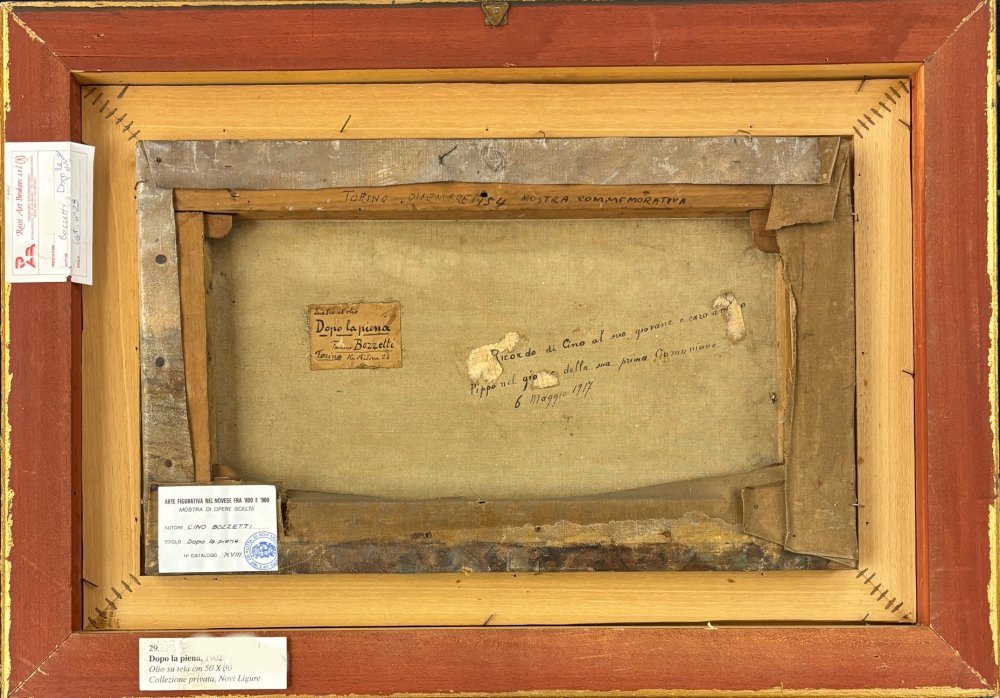 TORINO. DICEMBRE 1954 MOSTRA COMMEMORATIVA
Rami Art Brokers s.r.l.
Bozzetti, Dopo la
AUTORE
TITOLO
Dopo la piena
Bozzetti
Torino
Ricordo di Cino al suo giovane e caro
Pippo nel della sua prima Comunione
6 Maggio 1917
ARTE FIGURATIVA NEL NOVESE FRA '800 E '900
MOSTRA DI OPERE SCELTE
AUTORE CINO BOZZETTI
TITOLO Dopo la piena
N° CATALOGO XVIII
29.
Dopo la piena, 1902
Olio su tela cm 50 X 80
Collezione privata, Novi Ligure